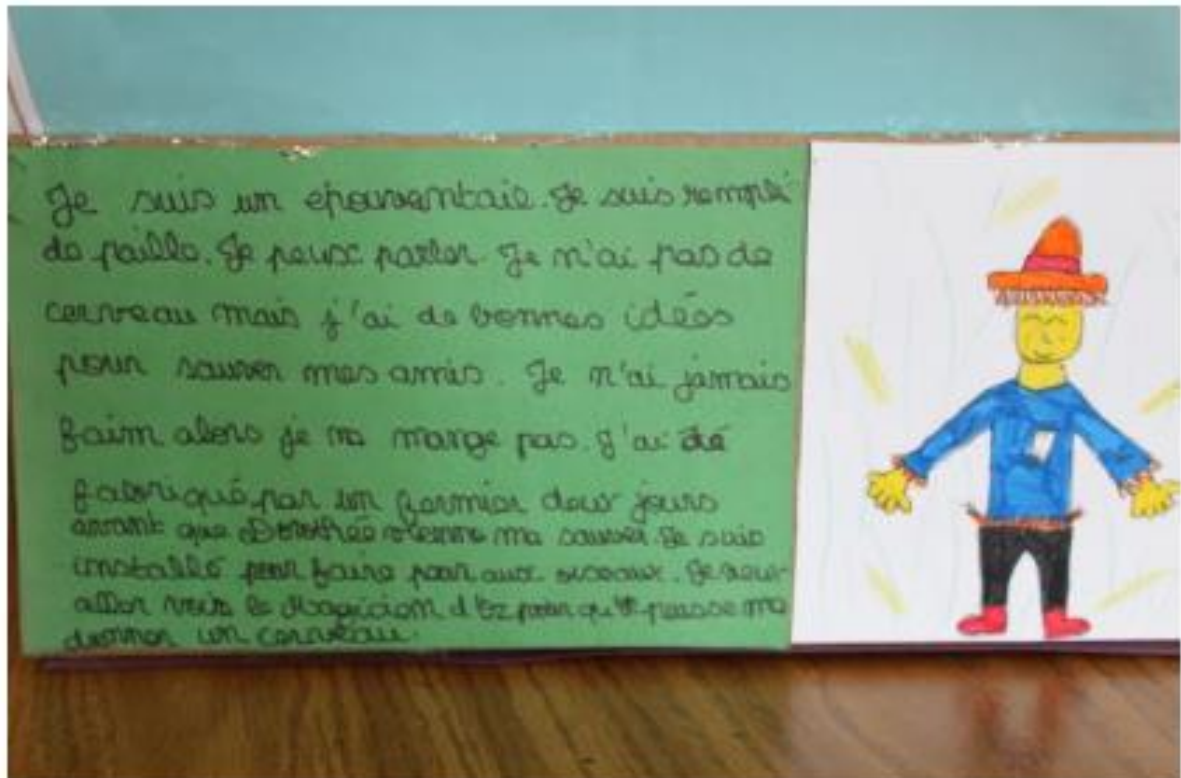 Je suis un epouventail. Je suis rempli
de paille. Je peux parler. Je n'ai pas de
cerveau mais j'ai de bonnes idées
pour sauver mes amis. Je n'ai jamais
faim alors je ne mange pas. J'ai été
fabriqué par un fermier deux jours
avant que Dorothée vienne me sauver. Je suis
installé pour faire peur aux oiseaux. Je veux
aller voir le Magicien d'Oz pour qu'il puisse me
donner un cerveau.